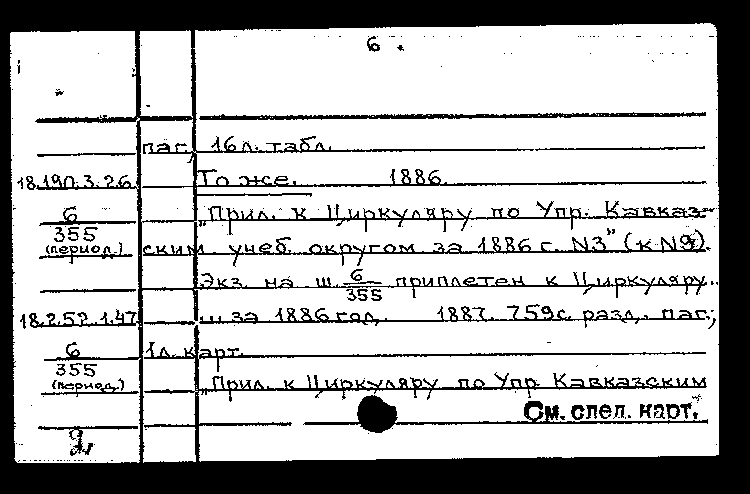 6.
паг, 16л. табл.
18.190.3.26. То же. 1886.
6 „Прил. к Циркуляру по Упр. Кавказ-
355
(период.) ским учеб. округом за 1886 г. N3" (к N9).
Экз. на ш. 6/355 приплетен к Циркуляру..
18.252.1.47 ... за 1886 год. 1887. 759с. разд. паг.;
6 1л. карт.
355
(период.) „Прил. к Циркуляру по Упр Кавказским
См. след. карт.